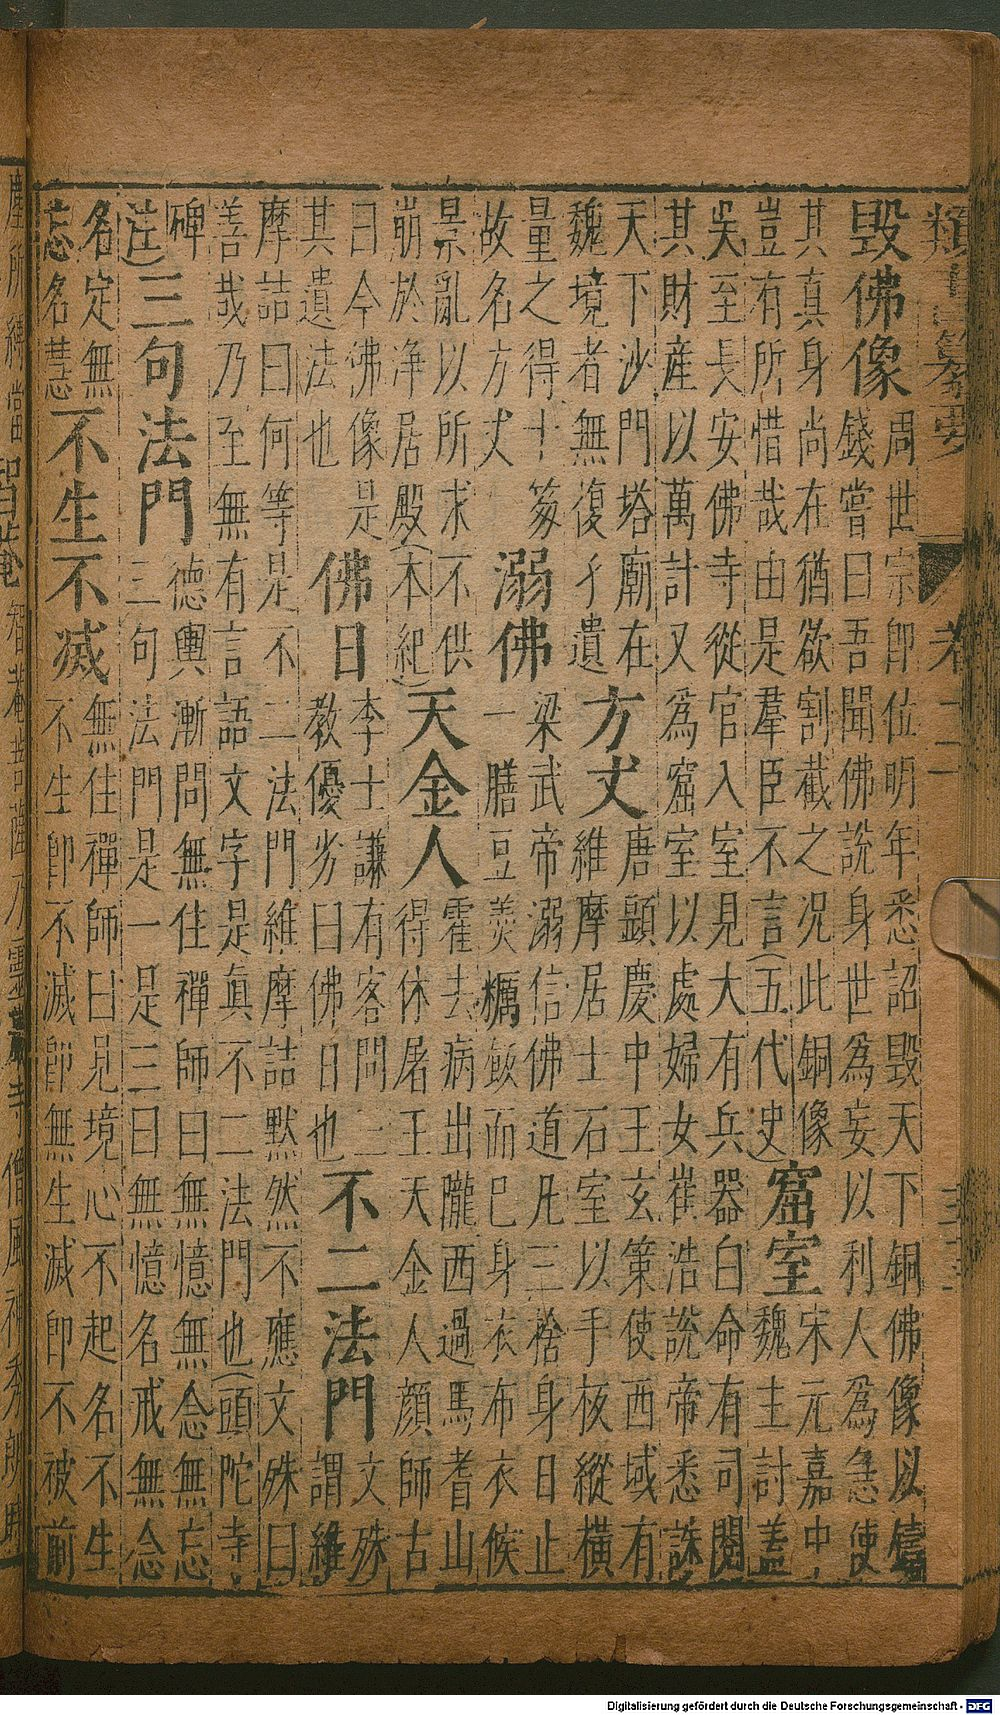 類書纂要 卷
毀佛像
周世宗即位明年悉詔毀天下銅佛像以鑄
錢嘗曰吾聞佛說身世為妄以利人為急使
其真身尚在猶欲割截之況此銅像
豈有所惜哉由是羣臣不言(五代史)
窟室
宋元嘉中
魏主討蓋
吳至長安佛寺從官入室見大有兵器白命有司閱
其財產以萬計又為窟室以處婦女崔浩說帝悉誅
天下沙門塔廟在
魏境者無復孑遺
方丈
唐顯慶中王玄策使西域有
維摩居士石室以手板縱橫
量之得十笏
故名方丈
溺佛
梁武帝溺信佛道凡三捨身日止
一膳豆羹糲飯而已身衣布衣候
景亂以所求不供
崩於净居殿(本紀)
天金人
霍去病出隴西過馬耆山
得休屠王天金人顏師古
曰今佛像是
其遺法也
佛日
李士謙有客問三
教優劣曰佛日也
不二法門
文殊
謂維
摩詰曰何等是不二法門維摩詰默然不應文殊曰
善哉乃至無有言語文字是真不二法門也(頭陀寺
碑
注)
三句法門
德輿漸問無住禪師曰無憶無念無忘
三句法門是一是三曰無憶名戒無念
名定無
忘名慧
不生不滅
無住禪師曰見境心不起名不生
不生即不滅即無生滅即不被前
塵所縛當
Digitalisierung gefördert durch die Deutsche Forschungsgemeinschaft - DFG